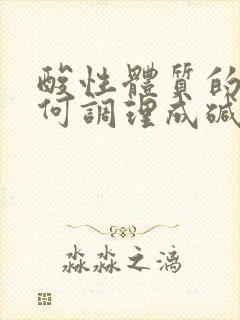 酸性體質的
何調理成碱
淼淼之漓